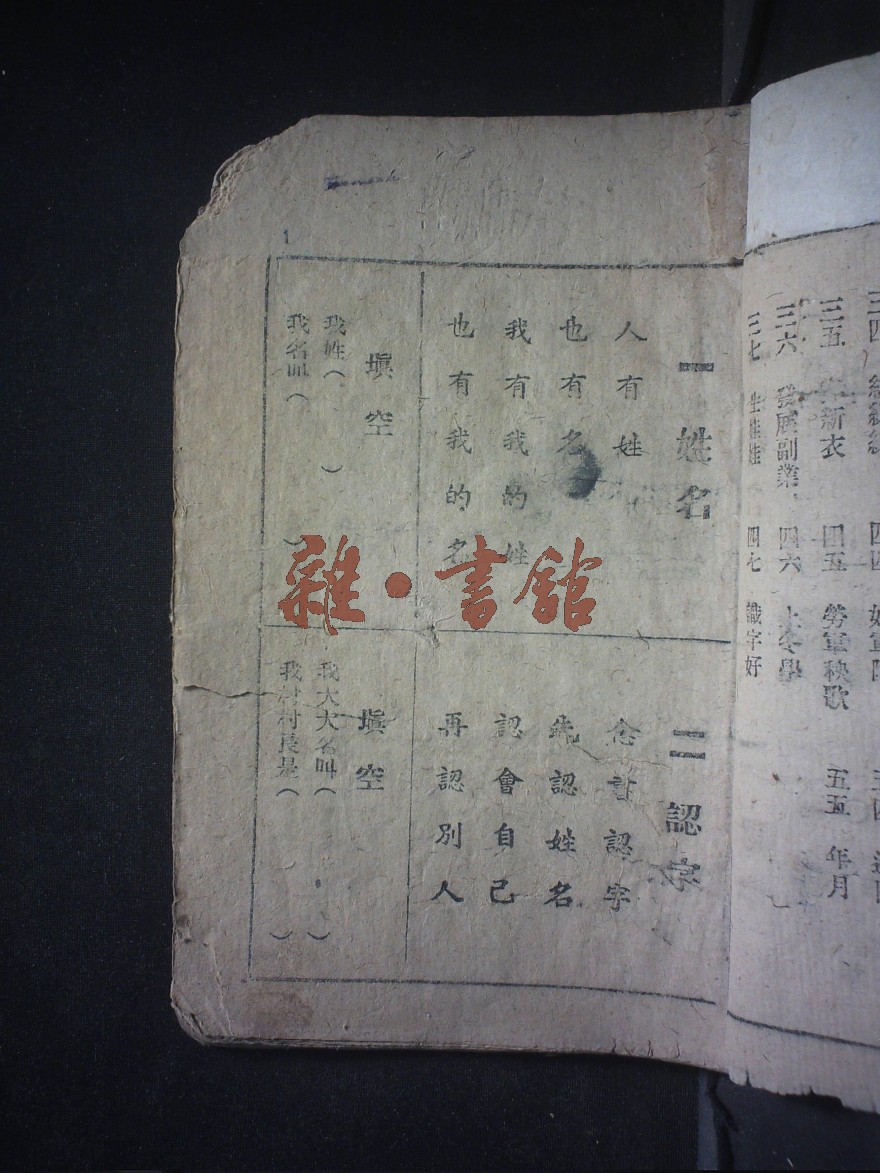 三五 新衣
三六 發展副業
三七
四五 勞軍秧歌
四六 上冬學
四七 識字好
五五 年月
1
一 姓名
人有姓
也有名
我有我的姓
也有我的名
填空
我姓（ ）
我名叫（ ）
二 認字
念書認字
先認姓名
認會自己
再認別人
填空
我大大名叫（ ）
我村村長是（ ）
雜·書館